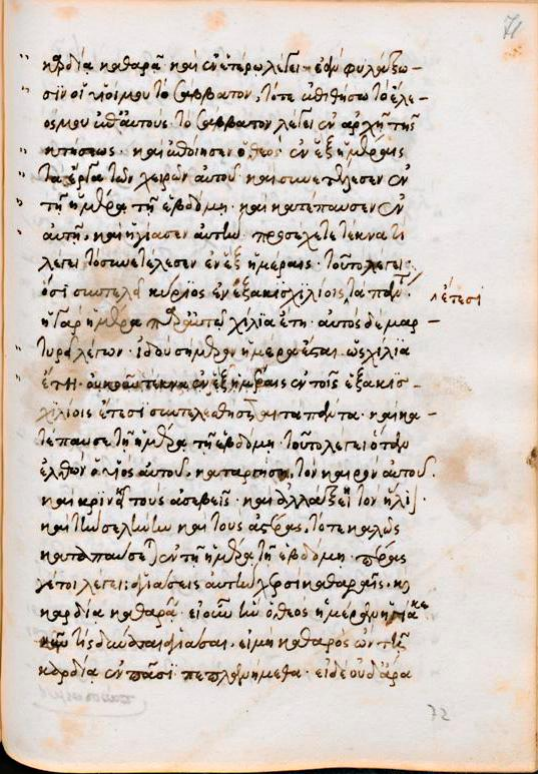 71
καρδία καθαρᾶ· καὶ ἐν ἑτέρω λέγει· ἐὰν φυλάξω-
σϊν οἱ υἱοί μου τὸ σάββατον, τότε ἐπιθήσω τὸ ἔλε-
ός μου ἐπ' αὐτούς· τὸ σάββατον λέγει ἐν ἀρχῆ τῆς
κτήσεως· καὶ ἐποίησεν ὁ θεὸς ἐν ἓξ ἡμέραις
τὰ ἔργα τῶν χειρῶν αὐτοῦ· καὶ συνετέλεσεν ἐν
τῆ ἡμέρα τῆ ἑβδόμη· καὶ κατέπαυσεν ἐν
αὐτῆ, καὶ ἡγίασεν αὐτήν· προσέχετε τέκνα τί
λέγει τὸ συνετέλεσεν ἐν ἓξ ἡμέραις· τοῦτο λέγει,
ὅτι συντελεῖ κύριος ἐν ἑξακισχιλίοις τὰ πάντα·
ἔτεσι
ἡ γὰρ ἡμέρα παρ' αὐτῶ χίλϊα ἔτη· αὐτὸς δὲ μαρ-
τυρεῖ λέγων· ἰδοὺ σήμερον ἡμέρα ἔσται ὡς χίλϊα
ἔτη· οὐκοῦν τέκνα ἐν ἓξ ἡμέραις ἐν τοῖς ἑξακισ-
χιλίοις ἔτεσϊ συντελεσθήσεται τὰ πάντα· καὶ κα-
τέπαυσε τῆ ἡμέρα τῆ ἑβδόμη· τοῦτο λέγει ὅταν
ἐλθὼν ὁ υἱὸς αὐτοῦ, καταργήσει τὸν καιρὸν αὐτοῦ·
καὶ κρινεῖ τοὺς ἀσεβεῖς· καὶ ἀλλάξει τὸν ἥλιον·
καὶ τὴν σελήνην καὶ τοὺς ἀστέρας, τότε καλῶς
καταπαύσεται ἐν τῆ ἡμέρα τῆ ἑβδόμη· πέρας
γέ τοι λέγει· ἁγιάσεις αὐτὴν χερσὶ καθαραῖς· καὶ
καρδία καθαρᾶ· εἰ οὖν ἣν ὁ θεὸς ἡμέραν ἡγίακε
τὶς δύναται ἁγιάσαι, εἰ μὴ καθαρὸς ὢν τῆ
καρδία ἐν πᾶσϊ πεπλανήμεθα· εἰ δὲ οὐδ' ἄρα
72